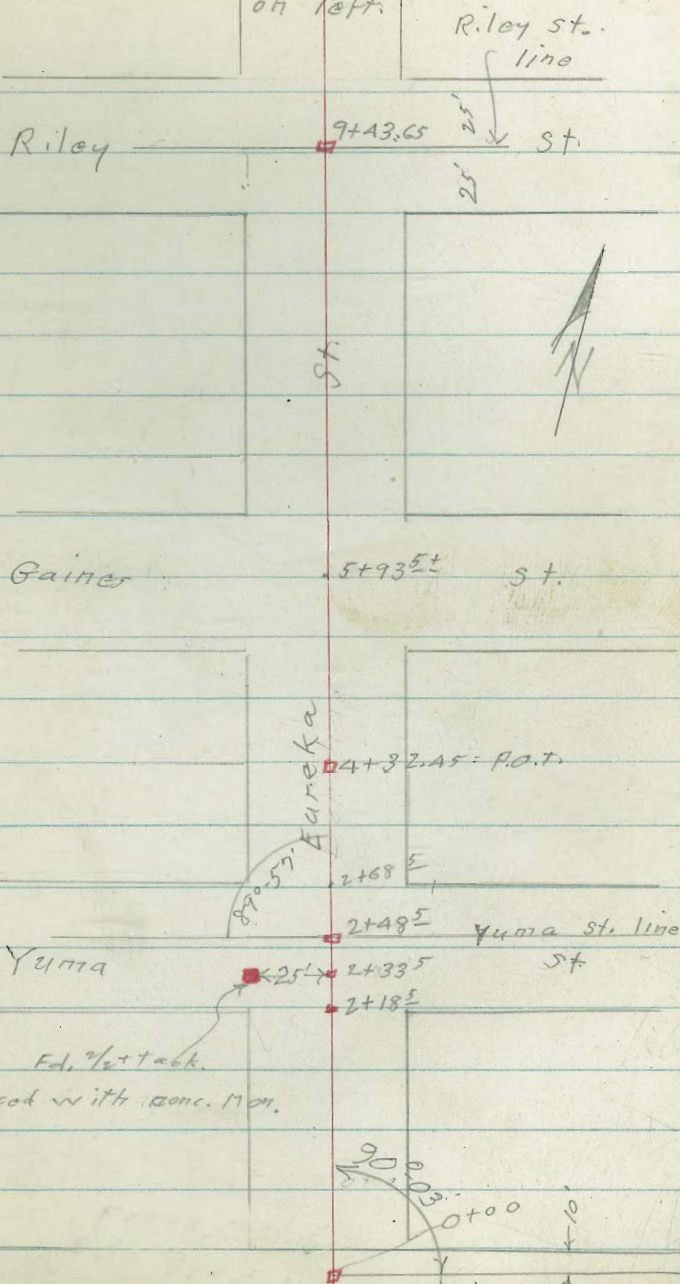 on left.
Riley st.
line
Riley
9+43.65
25'
St.
25'
St.
N
Gaines
5+93 5±
St.
Eureka
4+32.45 = P.O.T.
2+68 5
89°-57'
2+48 5
Yuma st. line
Yuma
25'
2+33 5
St.
2+18 5
Fd. 2/2 + tack.
with conc. Mon.
90°03'
0+00
10'